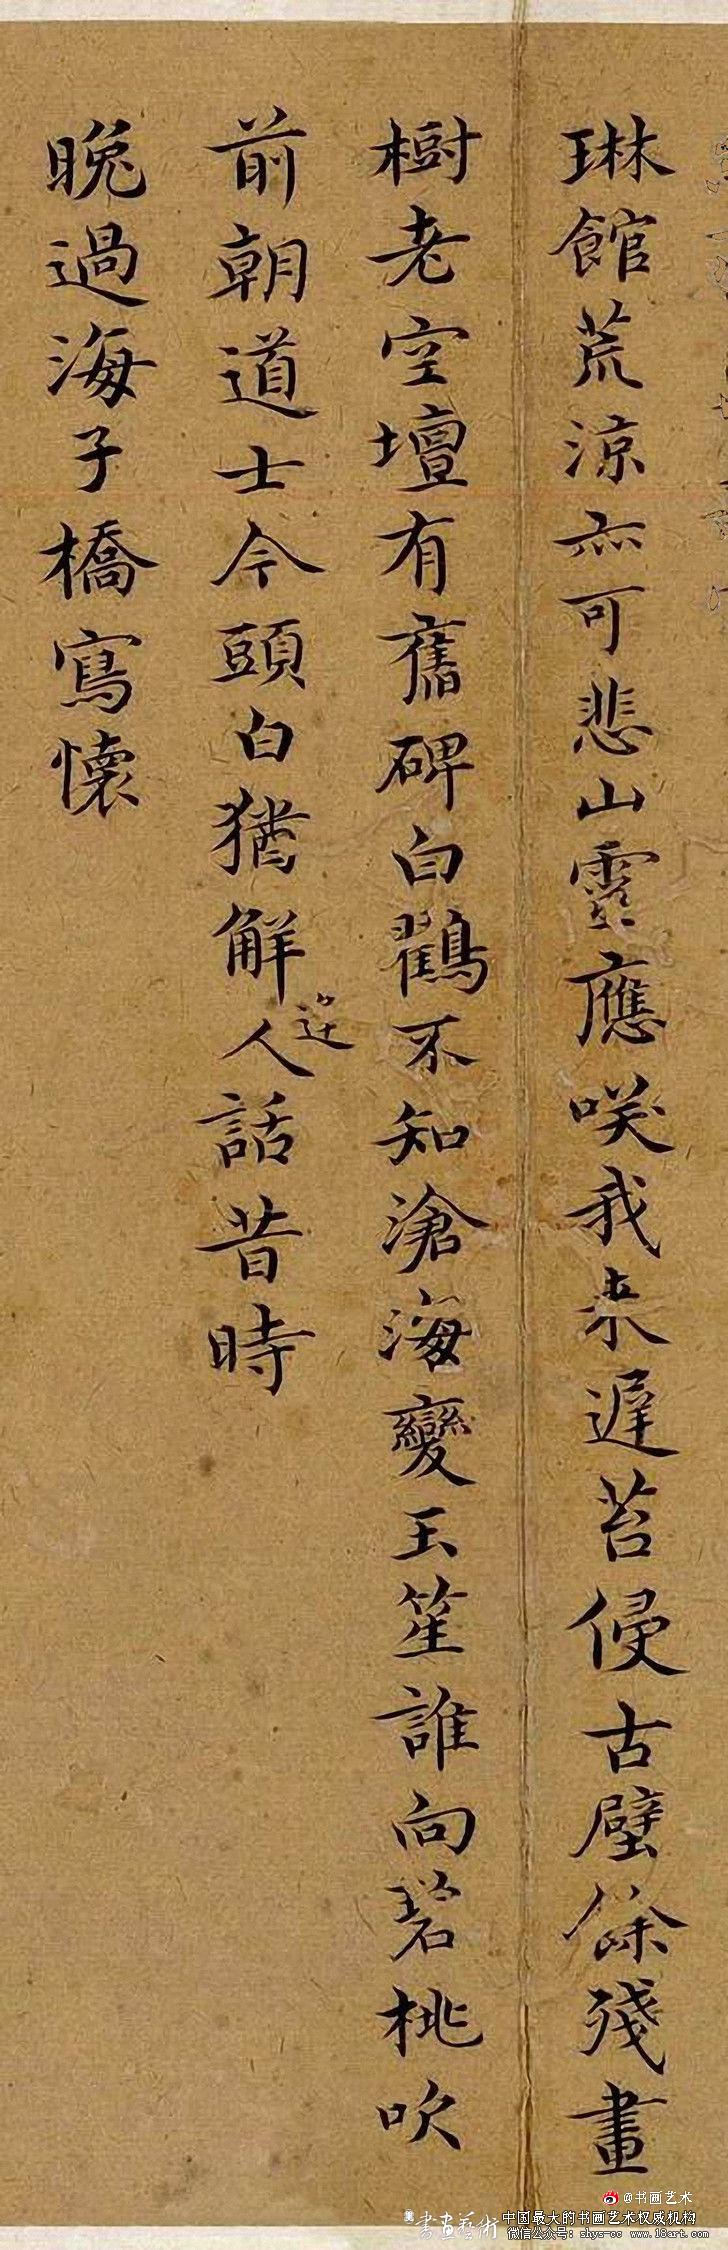 琳館荒涼亦可悲山靈應咲我来遲苔侵古壁餘殘畫
樹老空壇有舊碑白鸛不知滄海變玉笙誰向碧桃吹
前朝道士今頭白猶解迎人話昔時
晚過海子橋寫懷
@书画艺术
書畫藝術
中国最大的书画艺术权威机构
微信公众号：shys-cc www.18art.com